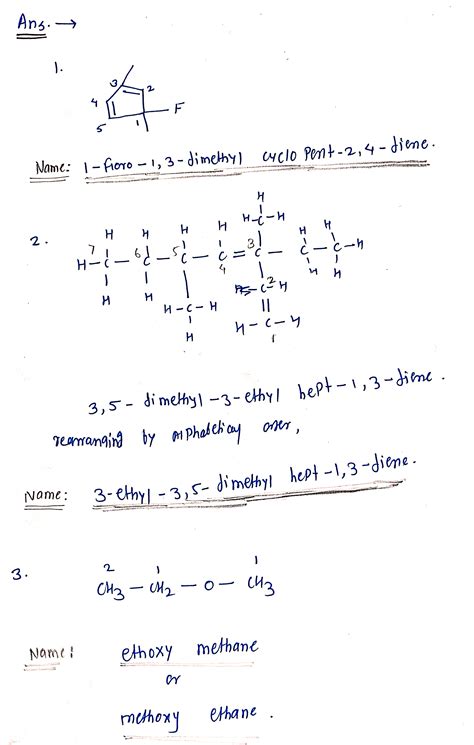 Ans. →
1.
3
4 2
F
5 1
Name: 1-floro-1,3-dimethyl cyclo Pent-2,4-diene.
H
H-C-H
2. H H H H
H-C7-C6-C5-C4=C3-C-C-H
H H H H H
H-C-H C2 H
H H-C-H
1
3,5- dimethyl-3-ethyl hept-1,3-diene.
rearranging by alphabetical order,
Name: 3-ethyl-3,5-dimethyl hept-1,3-diene.
3. 2 1 1
CH3-CH2-O-CH3
Name: ethoxy methane
or
methoxy ethane.